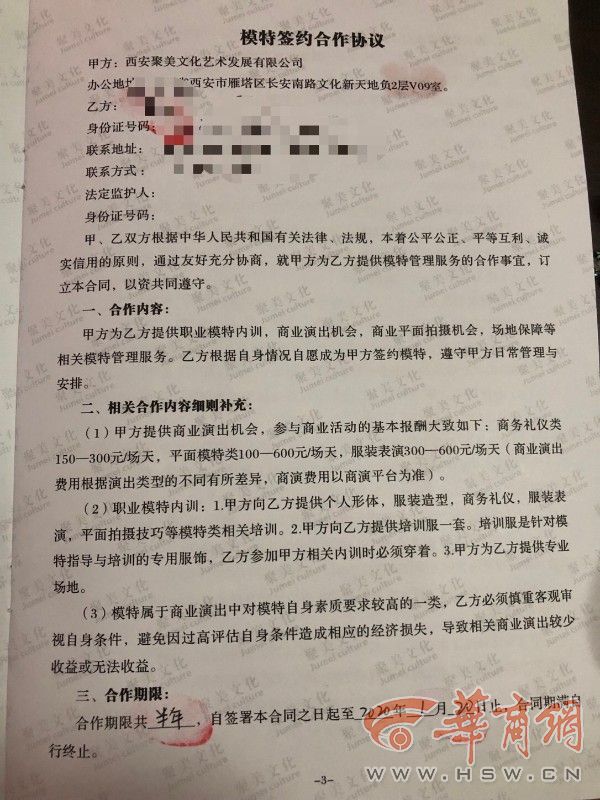 模特签约合作协议
甲方：西安聚美文化艺术发展有限公司
办公地 西安市雁塔区长安南路文化新天地负2层V09室。
乙方：
身份证号码：
联系地址：
联系方式：
法定监护人：
身份证号码：
甲、乙双方根据中华人民共和国有关法律、法规，本着公平公正、平等互利、诚
实信用的原则，通过友好充分协商，就甲方为乙方提供模特管理服务的合作事宜，订
立本合同，以资共同遵守。
一、合作内容：
甲方为乙方提供职业模特内训，商业演出机会，商业平面拍摄机会，场地保障等
相关模特管理服务。乙方根据自身情况自愿成为甲方签约模特，遵守甲方日常管理与
安排。
二、相关合作内容细则补充：
（1）甲方提供商业演出机会，参与商业活动的基本报酬大致如下：商务礼仪类
150—300元/场天，平面模特类100—600元/场天，服装表演300—600元/场天（商业演出
费用根据演出类型的不同有所差异，商演费用以商演平台为准）。
（2）职业模特内训：1.甲方向乙方提供个人形体，服装造型，商务礼仪，服装表
演，平面拍摄技巧等模特类相关培训。2.甲方向乙方提供培训服一套。培训服是针对模
特指导与培训的专用服饰，乙方参加甲方相关内训时必须穿着。3.甲方为乙方提供专业
场地。
（3）模特属于商业演出中对模特自身素质要求较高的一类，乙方必须慎重客观审
视自身条件，避免因过高评估自身条件造成相应的经济损失，导致相关商业演出较少
收益或无法收益。
三、合作期限：
合作期限共 半年 ，自签署本合同之日起至 2020年 1 月 20 日止，合同期满自
行终止。
-3-
华商网
WWW.HSW.CN
聚美文化
Jumei culture